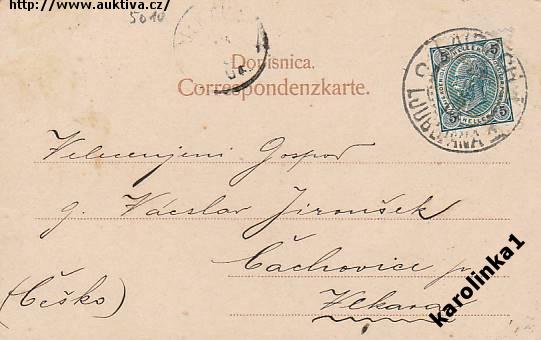 http://www.auktiva.cz/
5010
Dopisnica.
Correspondenzkarte.
5 5
HELLER
5 5
Velecenjeni Gospod
g. Václav Jiroušek
Čachovice p.
(Češko)
karolinka1